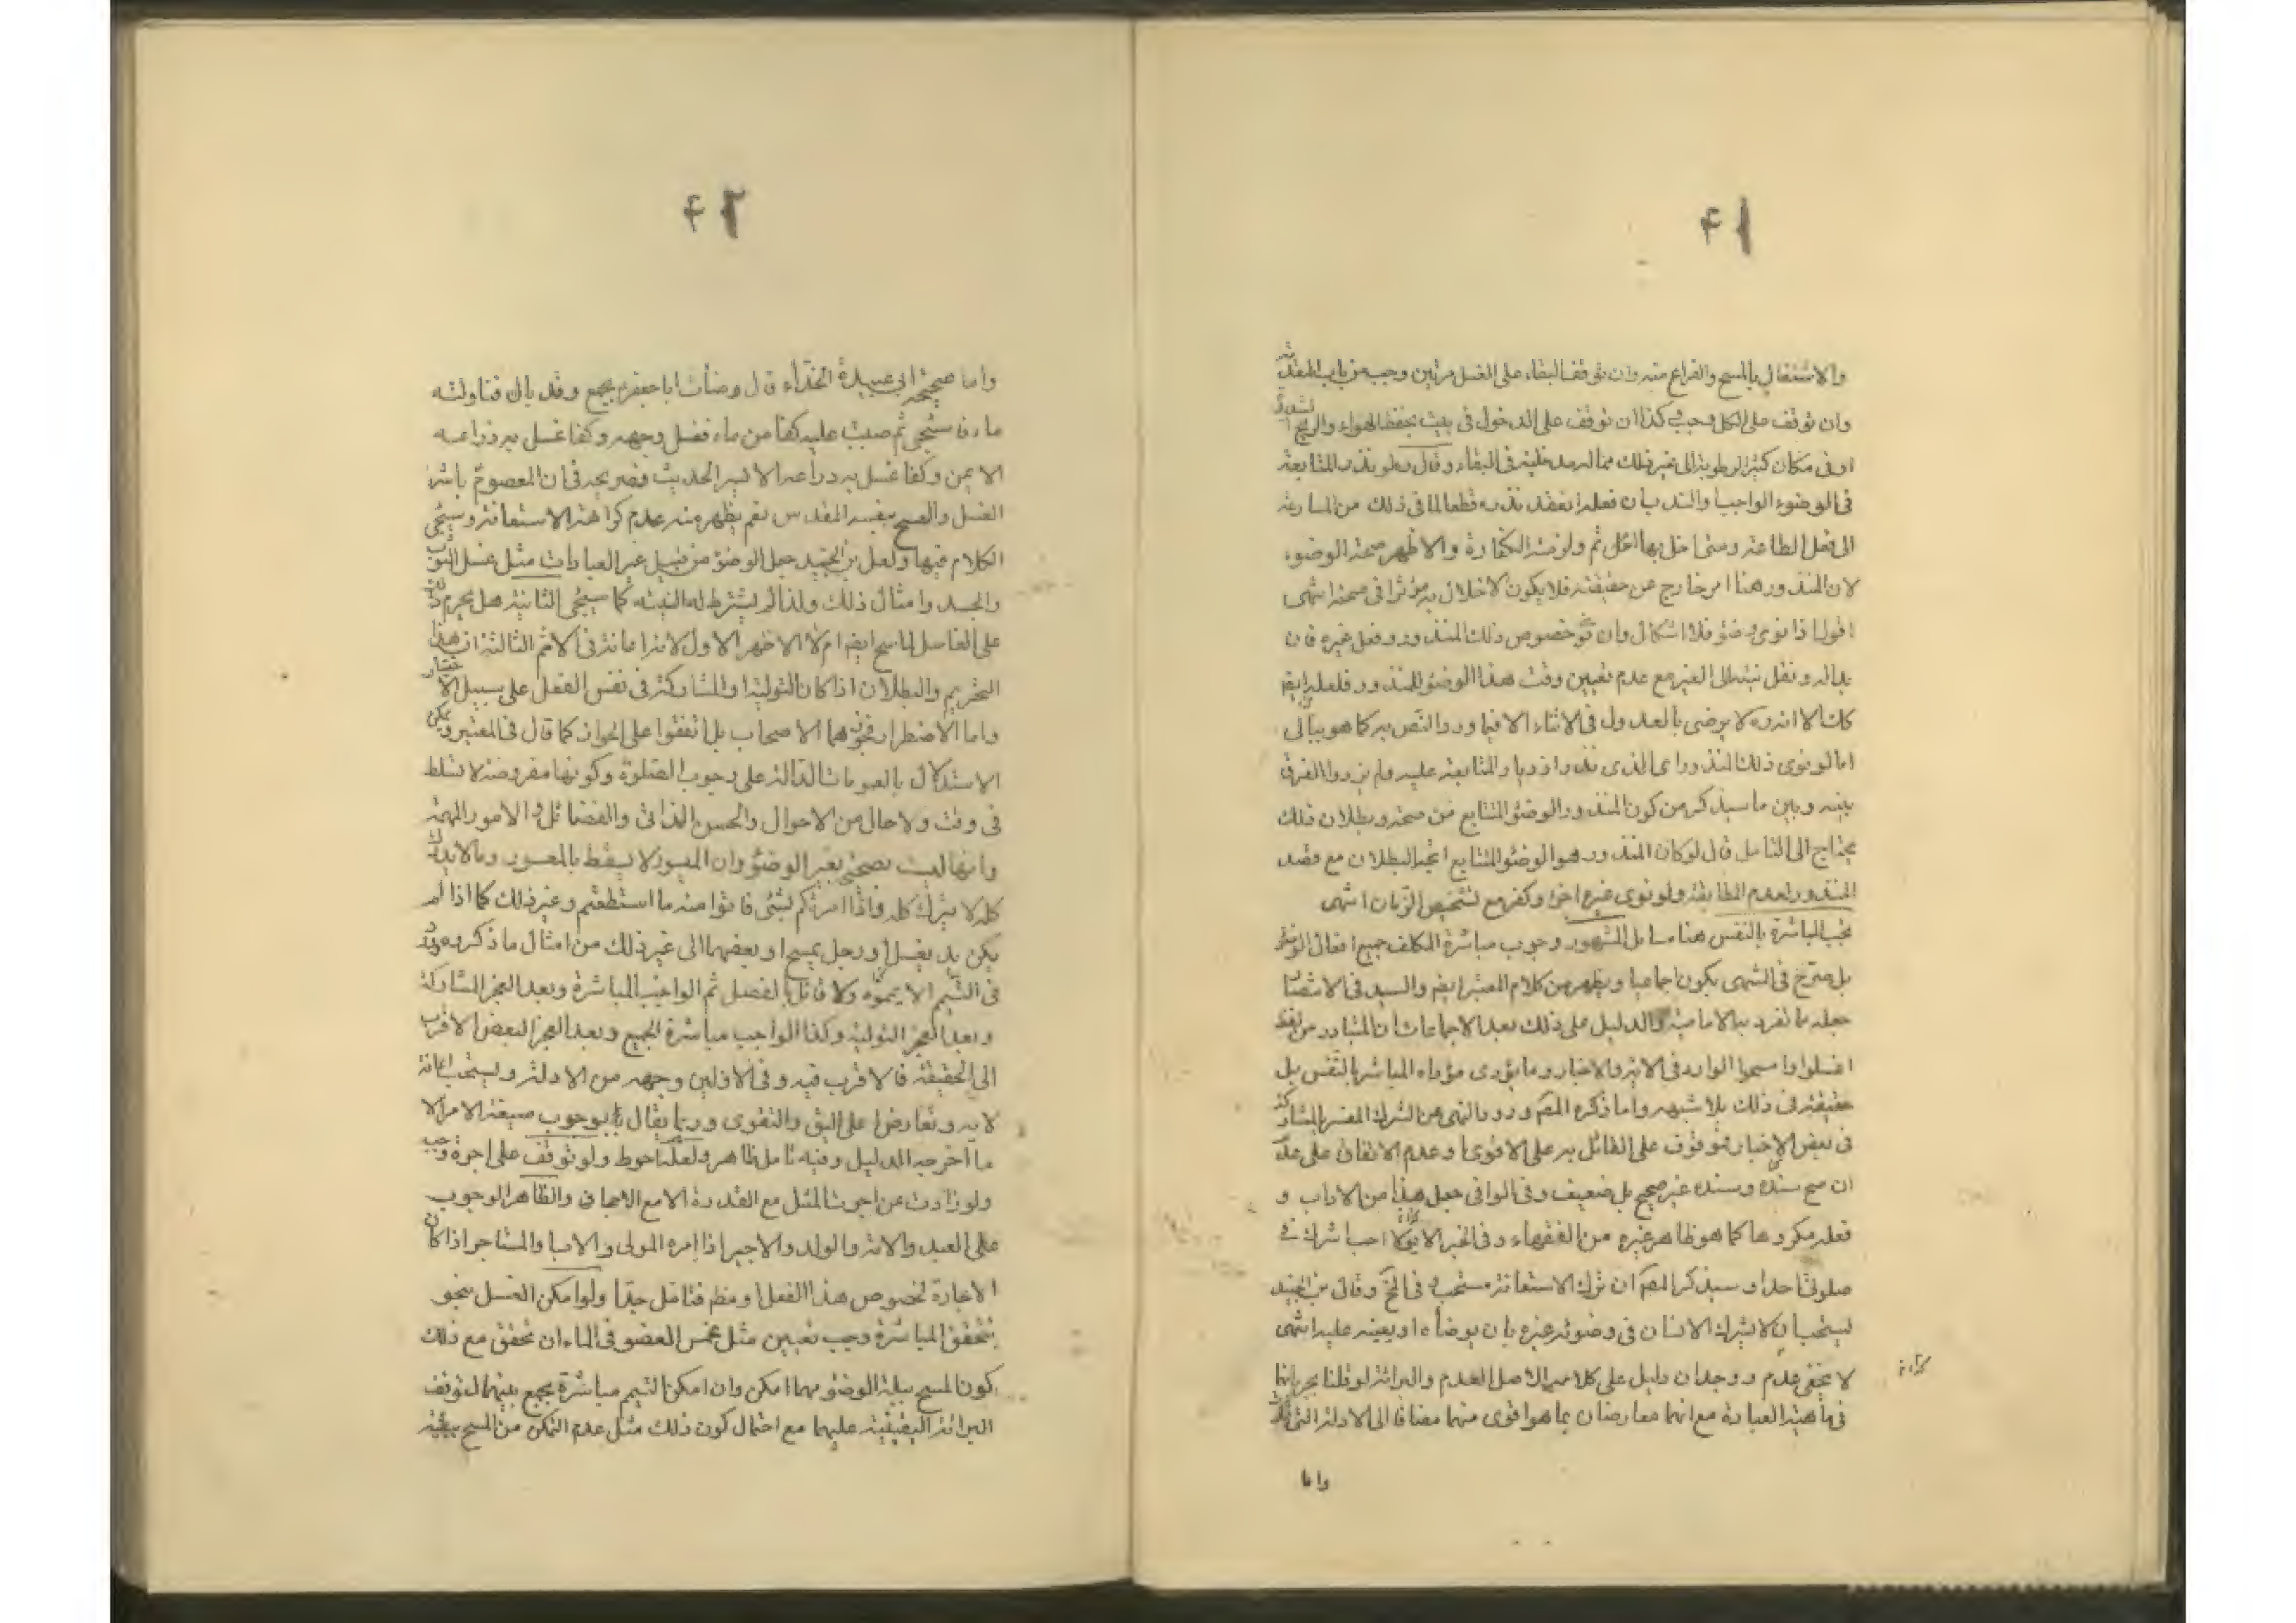 ۴۱
والاشتغال بالمسح والفراغ منه وان توقف البقاء على الغسل مرتين وجب من باب المقدمة
وان توقف على الكل وجب وكذا ان توقف على الدخول في بيت يحفظ الهواء والريح
او في مكان كثير الرطوبة الى غير ذلك مما له مدخلية في البقاء وقال ولو نذر المتابعة
في الوضوء الواجب والندب بان فعله انعقد نذره قطعا لما في ذلك من المسارعة
الى فعل الطاعة ومتى اخل بها اثم ولزمته الكفارة والاظهر صحة الوضوء
لان المنذور هنا امر خارج عن حقيقته فلا يكون الاخلال به مؤثرا في صحته انتهى
اقول اذا نوى وضوء فلا اشكال وان خصوص ذلك المنذور وفعل غيره فان
بداله ونقل نيته الى الغير مع عدم تعيين وقت هذا الوضوء للمنذور فلعله ايضا
كك الا انه ره لا يرضى بالعدول في الاثناء الا فيما ورد النص به كما هو ببالى
اما لو نوى ذلك المنذور اعنى الذى نذر والمتابعة عليه ولم الفرق
بينه وبين ما سيذكره من كون المنذور الوضوء المتتابع صحته وبطلان ذلك
يحتاج الى التامل قال لو كان المنذور هو الوضوء المتتابع اتجه البطلان مع قصد
المنذور لعدم المطابقة ولو نوى غيره اجزء وكفر مع تشخيص الزمان انتهى
تجب المباشرة بالنفس هنا مسائل المشهور وجوب مباشرة المكلف جميع افعال الوضوء
بل صرح في المنتهى يكون اجماعيا ويظهر من كلام المعتبر ايضا والسيد في الانتصار
جعله ما تفرد به الامامية والدليل على ذلك بعد الاجماعات ان المتبادر من لفظ
اغسلوا وامسحوا الوارد في الاية والاخبار وما يؤدى مؤداه المباشرة بالنفس بل
حقيقته في ذلك بلا شبهه واما ذكره المص ورود النهى عن الشرك المفسر بالمشاركة
في بعض الاخبار فموقوف على القائل به على الاقوى او عدم الاتفاق على عدمه
ان صح سنده وسنده غير صحيح بل ضعيف وفي الوافى جعل هذا من الاداب و
فعله مكروها كما هو ظاهر غيره من الفقهاء وفي الخبر لا احب اشرك في
صلوتى احدا وسيذكر المص ان ترك الاستعانة مستحب وفي وقال بن الجنيد
يستحب ان لا يشرك الانسان في وضوئه غيره بان يوضأه او يعينه عليه انتهى
لا يخفى عدم وجدان دليل على كلاميه الا اصل العدم والبرائة لو قلنا بجريانها
في ماهية العبادة مع انهما معارضان بما هو اقوى منهما مضافا الى الادلة التى
واما
۴۲
واما صحيحة ابى عبيدة الحذاء قال وضأت ابا جعفر بجمع وقد بال فناولته
ماء فاستنجى ثم صببت عليه كفا من ماء فغسل وجهه وكفا غسل به ذراعه
الايمن وكفا غسل به ذراعه الايسر الحديث فصريحه في ان المعصوم باشر
الغسل والمسح بنفسه المقدس نعم يظهر منه عدم كراهة الاستعانة وسيجى
الكلام فيها ولعل بن الجنيد جعل الوضوء من قبيل غير العبادات مثل غسل الثوب
والجسد وامثال ذلك ولذا لم يشترط له النيته كما سيجى الثانية هل يحرم ذلك
على الغاسل الماسح ايضا ام لا الاظهر الاول لانه اعانة في الاثم الثالثة ان هذا
التحريم والبطلان اذا كان التولية او المشاركة في نفس الفعل على سبيل الاختيار
واما الاضطرار فجوزهما الاصحاب بل اتفقوا على الجواز كما قال في المعتبر ويمكن
الاستدلال بالعمومات الدالة على وجوب الصلوة وكونها مفروضة لا تسقط
في وقت ولا حال من الاحوال والحسن الذاتى والفضائل والامور المهمة
وانها ليست بصحتى بغير الوضوء وان الميسور لا يسقط بالمعسور وما لا يدرك
كله لا يترك كله واذا امرتكم بشئى فاتوا منه ما استطعتم وغير ذلك كما اذا لم
يكن يد يغسل او رجل يمسح او بعضهما الى غير ذلك من امثال ما ذكر وورد
في التيمم الا يمموه ولا قائل بالفصل ثم الواجب المباشرة وبعد العجز المشاركة
وبعد العجز التولية وكذا الواجب مباشرة الجميع وبعد العجز البعض الاقرب
الى الحقيقة فالاقرب فيه وفي الاولين وجهه من الادلة ويستحب اعانة
لانه وتعاونوا على البر والتقوى وربما يقال بالوجوب صيغة الامر الا
ما اخرجه الدليل وفيه تامل ظاهر ولعله احوط ولو توقف على اجرة وجب
ولو زادت عن اجرت المثل مع القدرة الا مع الاجحاف والظاهر الوجوب
على العبد والامة والولد والاجير اذا امره المولى والاب والمستاجر اذا كان
الاجارة لخصوص هذا الفعل او فتامل جدا ولو امكن الغسل بنحو
يتحقق المباشرة وجب تعيين مثل غمس العضو في الماء ان تحقق مع ذلك
كون المسح ببلة الوضوء مهما امكن وان امكن التيمم مباشرة يجمع بينهما لتوقف
البرائة اليقينية عليهما مع احتمال كون ذلك مثل عدم التمكن من المسح ببقية